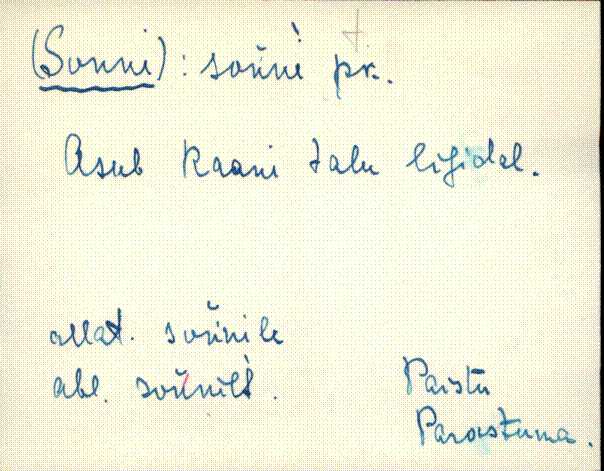 (Sonni) : soňnì̬ pr.
Asub Kaani talu ligidal.
allat. soňnile
abl. soňnilt̀.
Paistu
Parastuma.